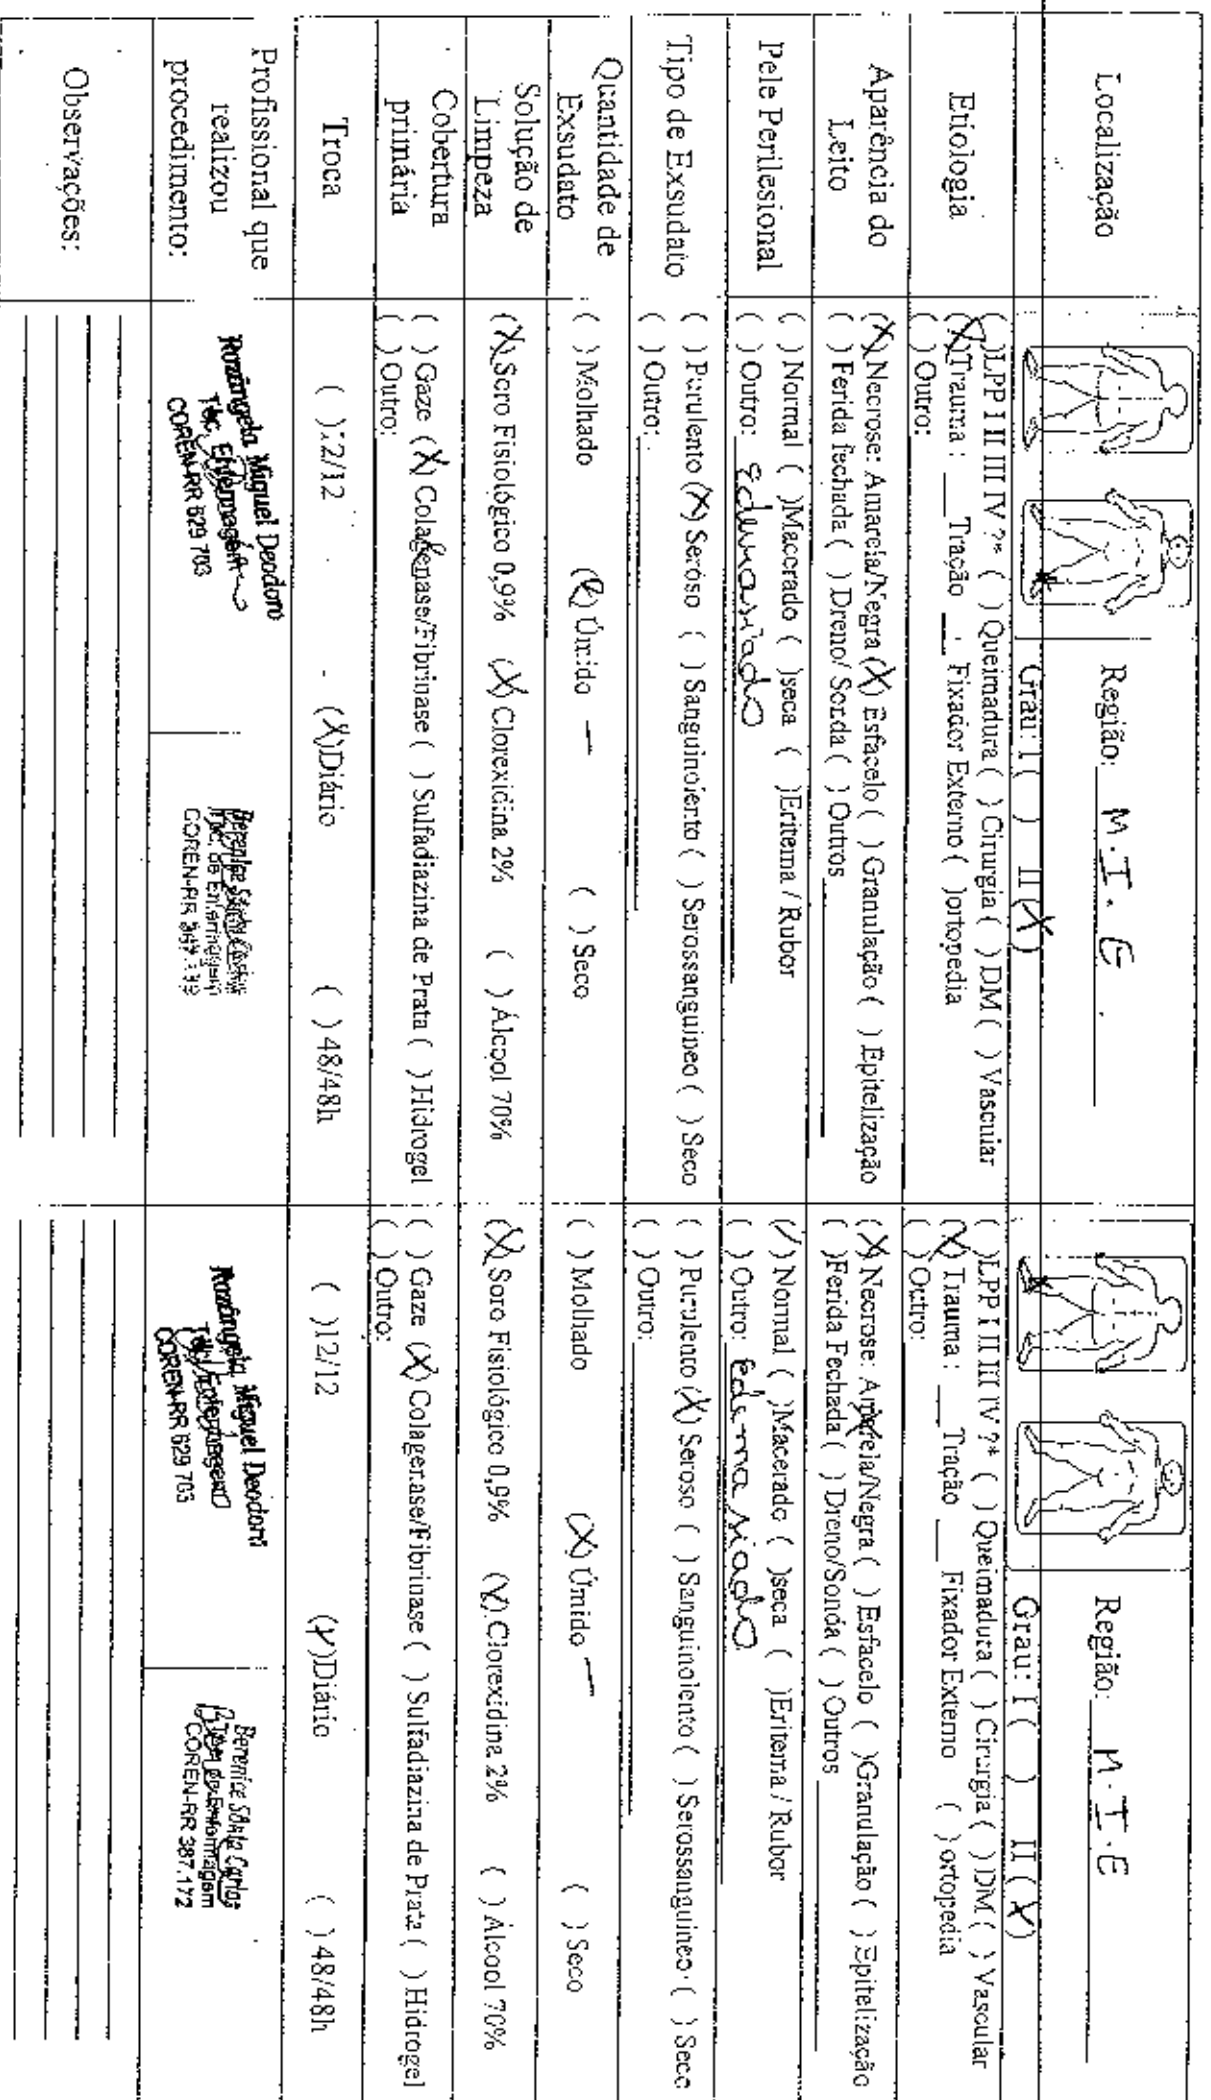 Localização
Região: M.I.E
Grau: I ( ) II (X)
Região: M.I.E
Grau: I ( ) II (X)
Etiologia
( )LPP I II III IV ?* ( ) Queimadura ( ) Cirurgia ( ) DM ( ) Vascular
(X)Trauma : ___Tração ___ Fixador Externo ( )ortopedia
( ) Outro:
( )LPP I II III IV ?* ( ) Queimadura ( ) Cirurgia ( ) DM ( ) Vascular
(X) Trauma : ___ Tração ___ Fixador Externo ( ) ortopedia
( ) Outro:
Aparência do
Leito
(X) Necrose: Amarela/Negra (X) Esfacelo ( ) Granulação ( ) Epitelização
( ) Ferida fechada ( ) Dreno/ Sonda ( ) Outros
(X) Necrose: Amarela/Negra ( ) Esfacelo ( )Granulação ( ) Epitelização
( )Ferida Fechada ( ) Dreno/Sonda ( ) Outros
Pele Perilesional
( ) Normal ( )Macerado ( )seca ( )Eritema / Rubor
( ) Outro: edemasiado
(/) Normal ( )Macerado ( )seca ( )Eritema / Rubor
( ) Outro: Edemasiado
Tipo de Exsudato
( ) Purulento (X) Seroso ( ) Sanguinolento ( ) Serossanguineo ( ) Seco
( ) Outro:
( ) Purulento (X) Seroso ( ) Sanguinolento ( ) Serossanguineo ( ) Seco
( ) Outro:
Quantidade de
Exsudato
( ) Molhado (X) Úmido ( ) Seco
( ) Molhado (X) Úmido ( ) Seco
Solução de
Limpeza
(X) Soro Fisiológico 0,9% (X) Clorexidina 2% ( ) Álcool 70%
(X) Soro Fisiológico 0,9% (X) Clorexidina 2% ( ) Álcool 70%
Cobertura
primária
( ) Gaze (X) Colagenase/Fibrinase ( ) Sulfadiazina de Prata ( ) Hidrogel
( ) Outro:
( ) Gaze (X) Colagenase/Fibrinase ( ) Sulfadiazina de Prata ( ) Hidrogel
( ) Outro:
Troca
( )12/12 (X)Diário ( ) 48/48h
( )12/12 (X)Diário ( ) 48/48h
Profissional que
realizou
procedimento:
Rozângela Miguel Deodoro
Téc. Enfermagem
COREN-RR 629 703
Berenice
Téc. de Enfermagem
COREN-RR
Rozângela Miguel Deodoro
Téc. Enfermagem
COREN-RR 629 703
Berenice Sônia Carlos
Téc. de Enfermagem
COREN-RR 387.172
Observações: